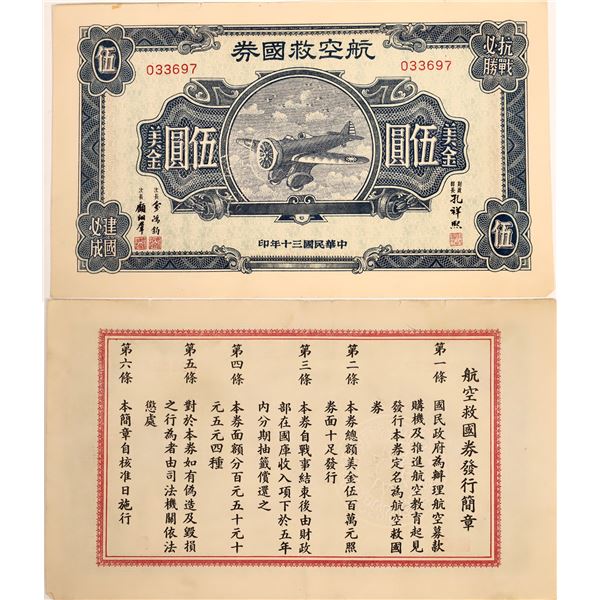 航空救國券
033697
033697
抗戰
必勝
伍
美金
伍圓
美金
伍圓
財政部長 孔祥熙
次長 俞鴻鈞
次長 顧翊群
建國
必成
伍
中華民國三十年印
航空救國券發行簡章
第一條 國民政府為辦理航空募款
購機及推進航空教育起見
發行本券定名為航空救國
券
第二條 本券總額美金伍百萬元照
券面十足發行
第三條 本券自戰事結束後由財政
部在國庫收入項下於五年
內分期抽籤償還之
第四條 本券面額分百元五十元十
元五元四種
第五條 對於本券如有偽造及毀損
之行為者由司法機關依法
懲處
第六條 本簡章自核准日施行